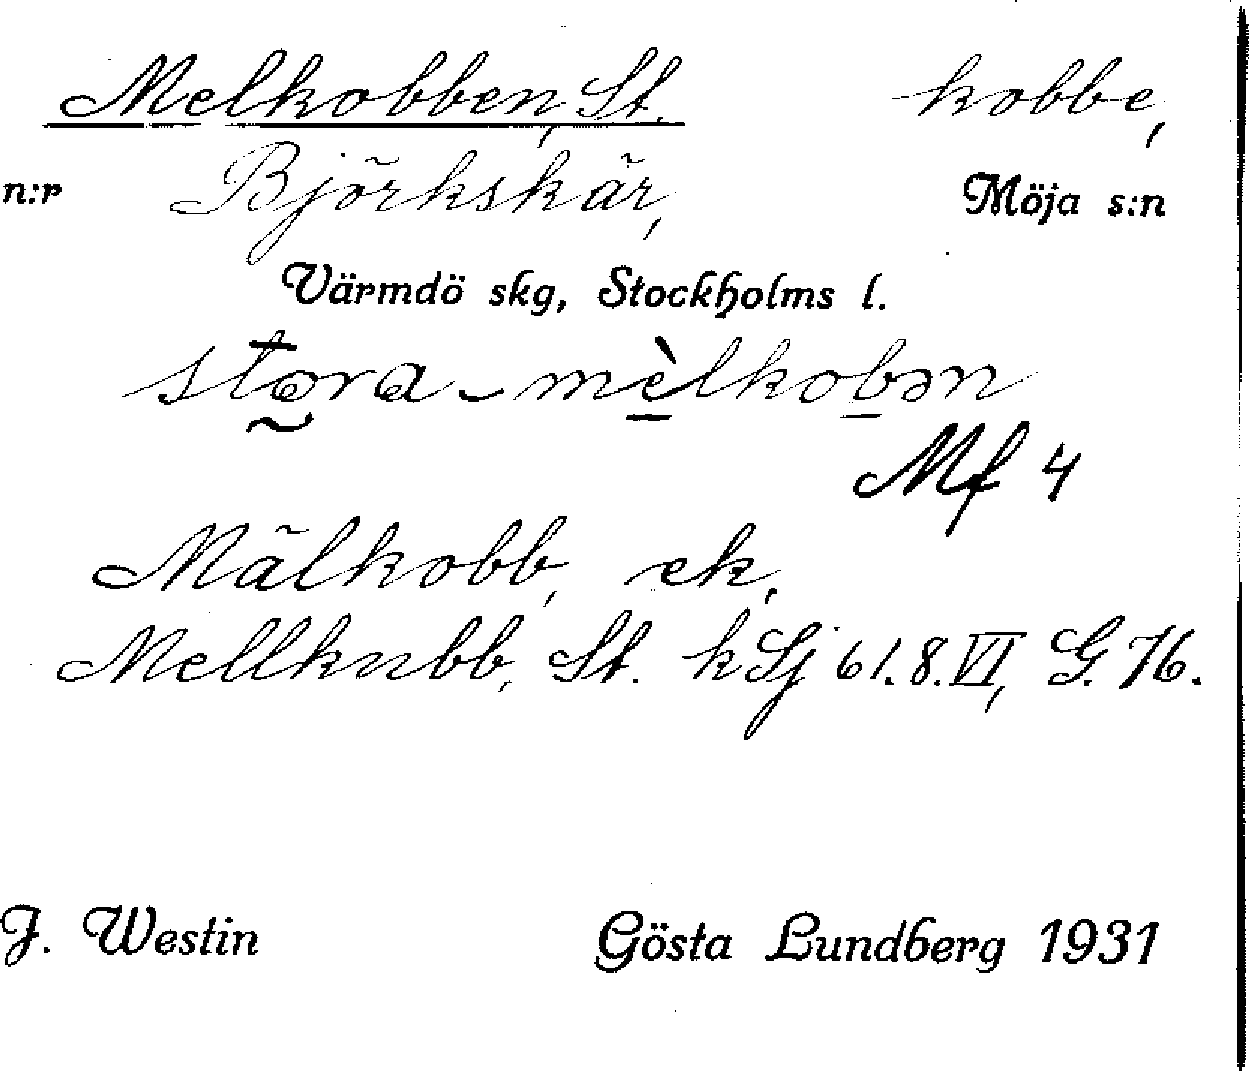 Melkobben, St. kobbe,
n:r Björkskär, Möja s:n
Värmdö skg, Stockholms l.
stora-mèlkobən
Mf 4
Mälkobb, ek,
Mellkubb, St. kSj 61.8.VI, G. 76.
J. Westin Gösta Lundberg 1931